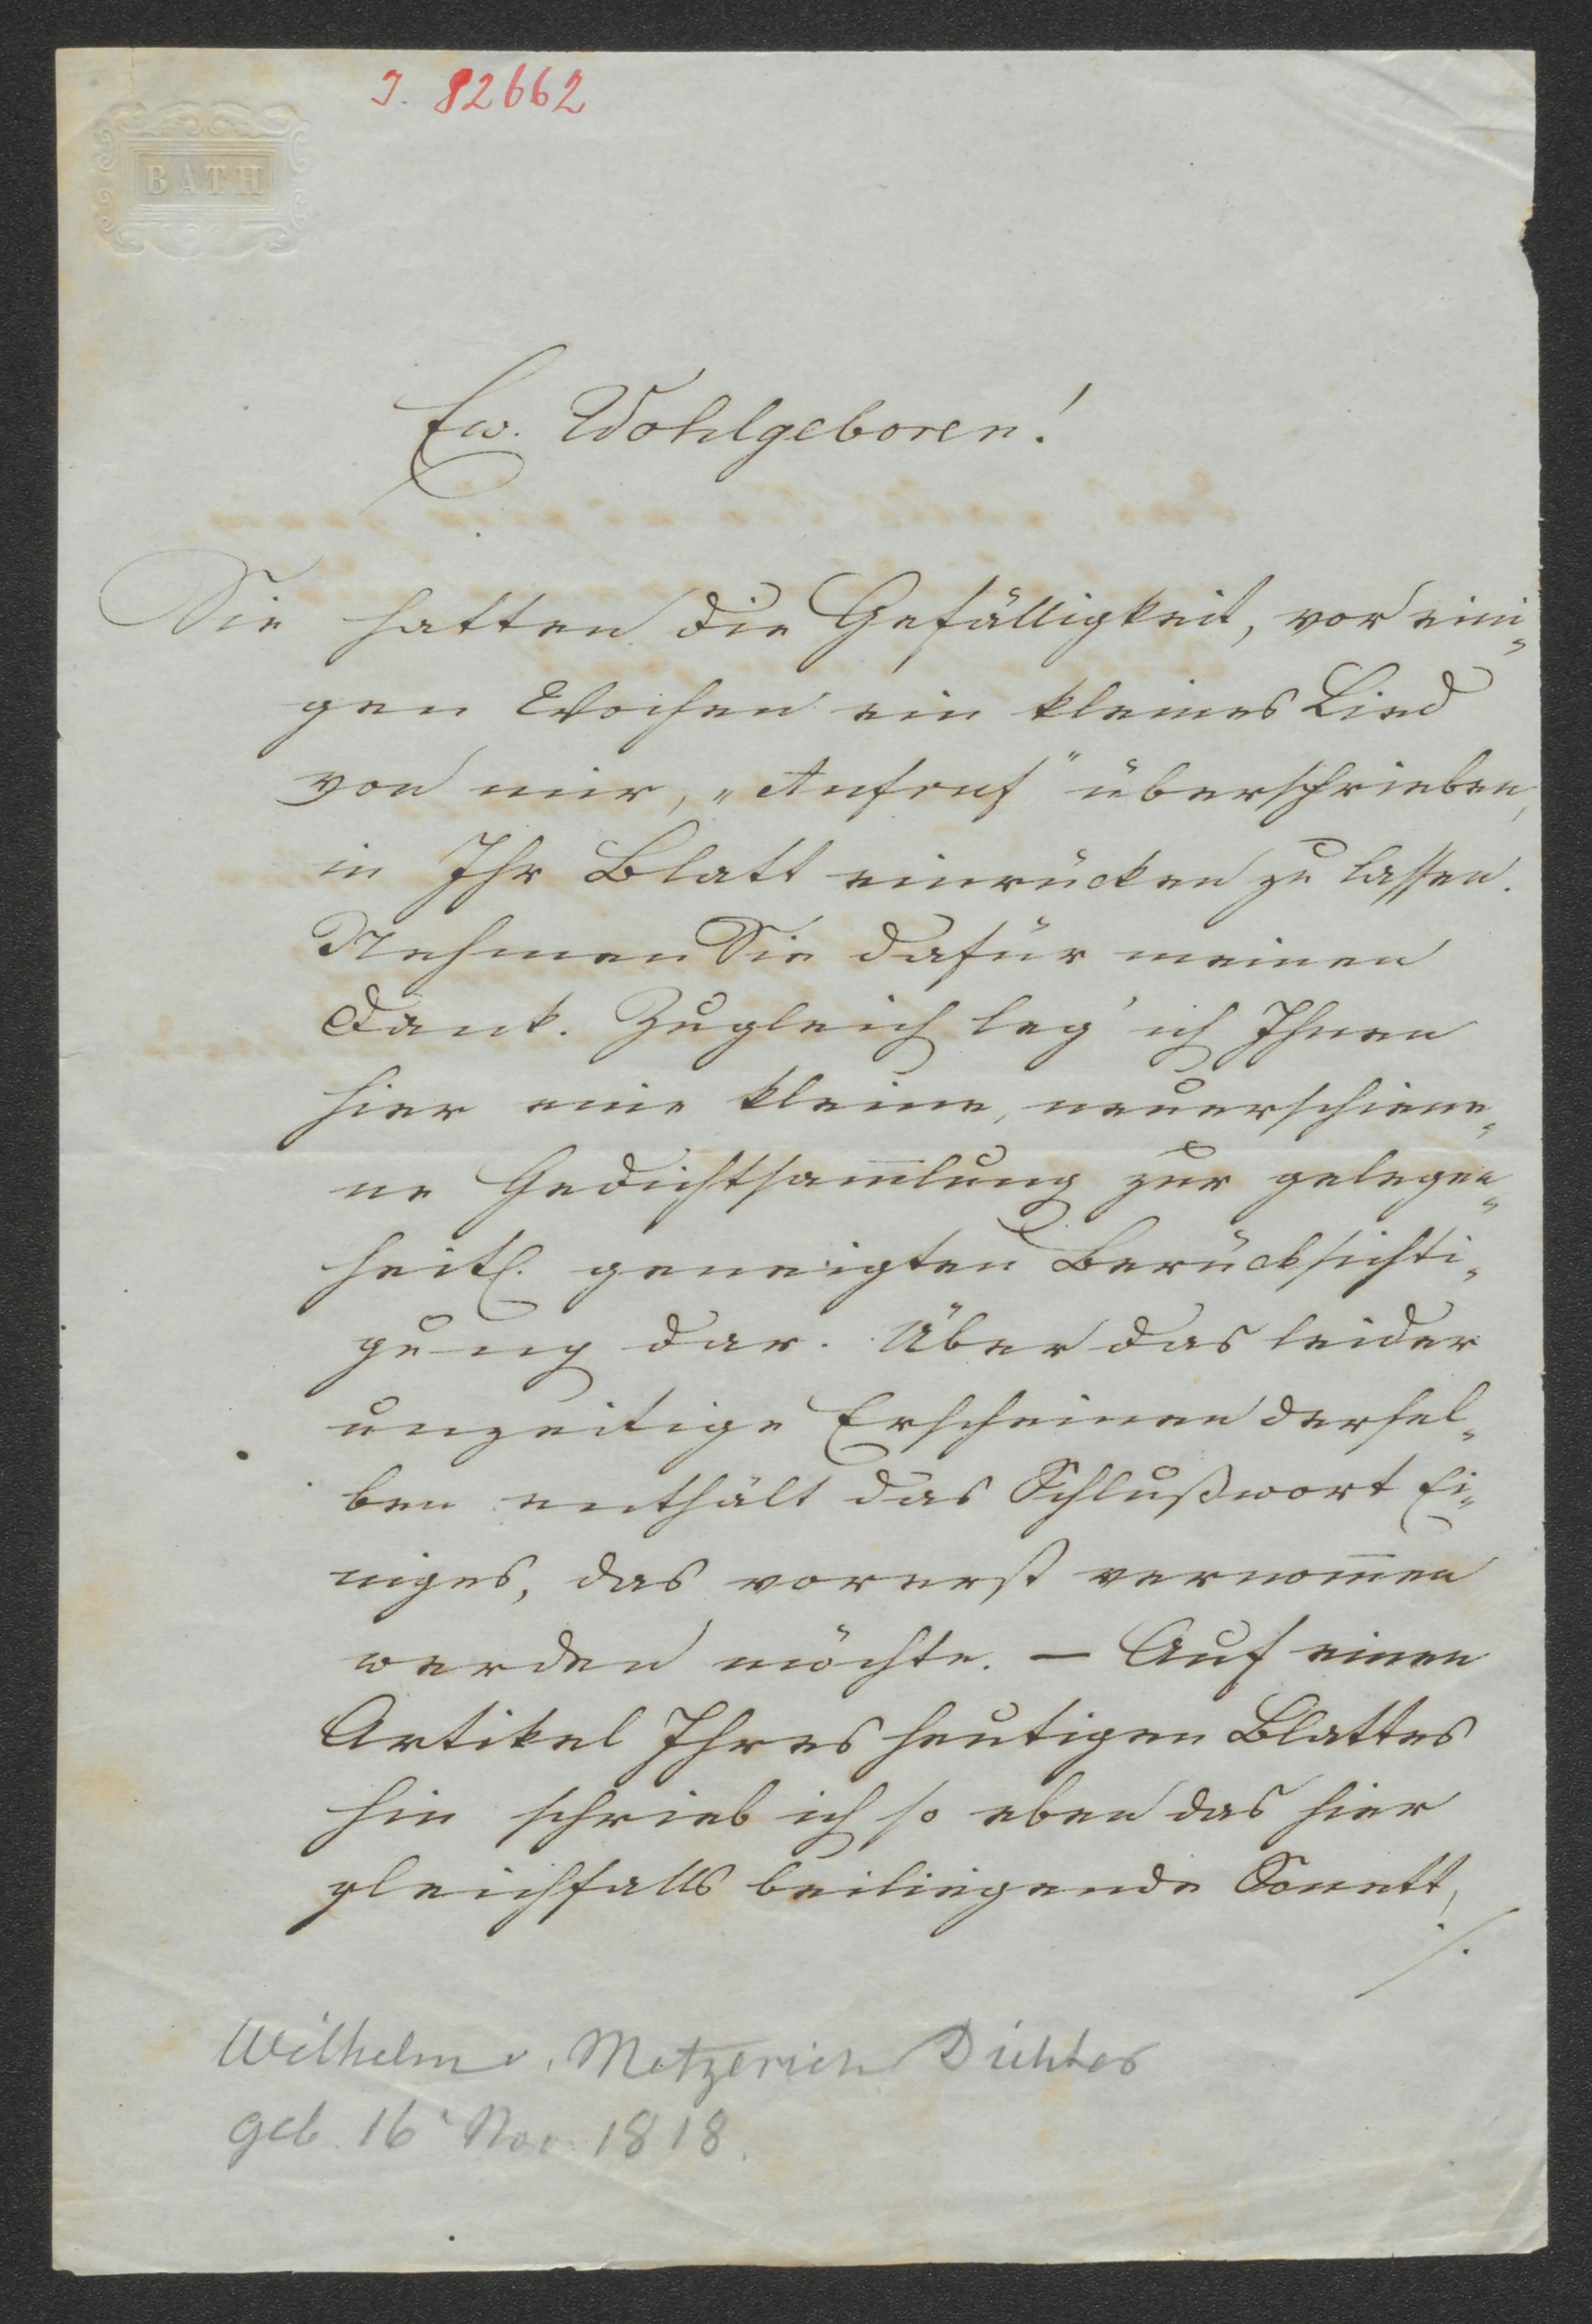 J. 82662
BATH
Ew. Wohlgeboren!
Sie hatten die Gefälligkeit, vor eini-
gen Wochen ein kleines Lied
von mir, „Aufruf" überschrieben,
in Ihr Blatt einrücken zu lassen.
Nehmen Sie dafür meinen
Dank. Zugleich leg' ich Ihnen
hier eine kleine, neuerschiene-
ne Gedichtsam̅lung zur gelegen-
heitl. geneigten Berücksichti-
gung dar. Über das leider
unzeitige Erscheinen dersel-
ben enthält das Schlußwort Ei-
niges, das vorerst vernom̅en
werden möchte. — Auf einen
Artikel Ihres heutigen Blattes
hin schrieb ich so eben das hier
gleichfalls beiliegende Sonett,
./.
Wilhelm v. Metzerich Dichter
geb. 16 Nov. 1818.